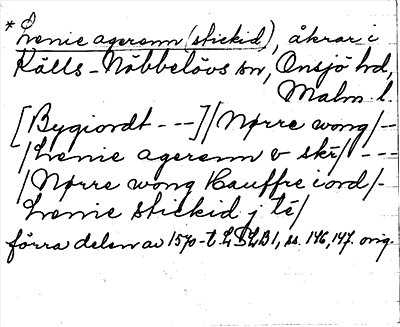 *Lenie agerenn (stickid), åkrar i
Källs-Nöbbelövs sn, Onsjö hd,
Malm. l.
[Bygiordt ---]/Nørre wong/--
/Lenie agerenn & skr/ ---
/Nørre wong Hauffre iord/-
Lenie stickid j té/
förra delen av 1570-t. LSLB1, ss. 146, 147. orig.